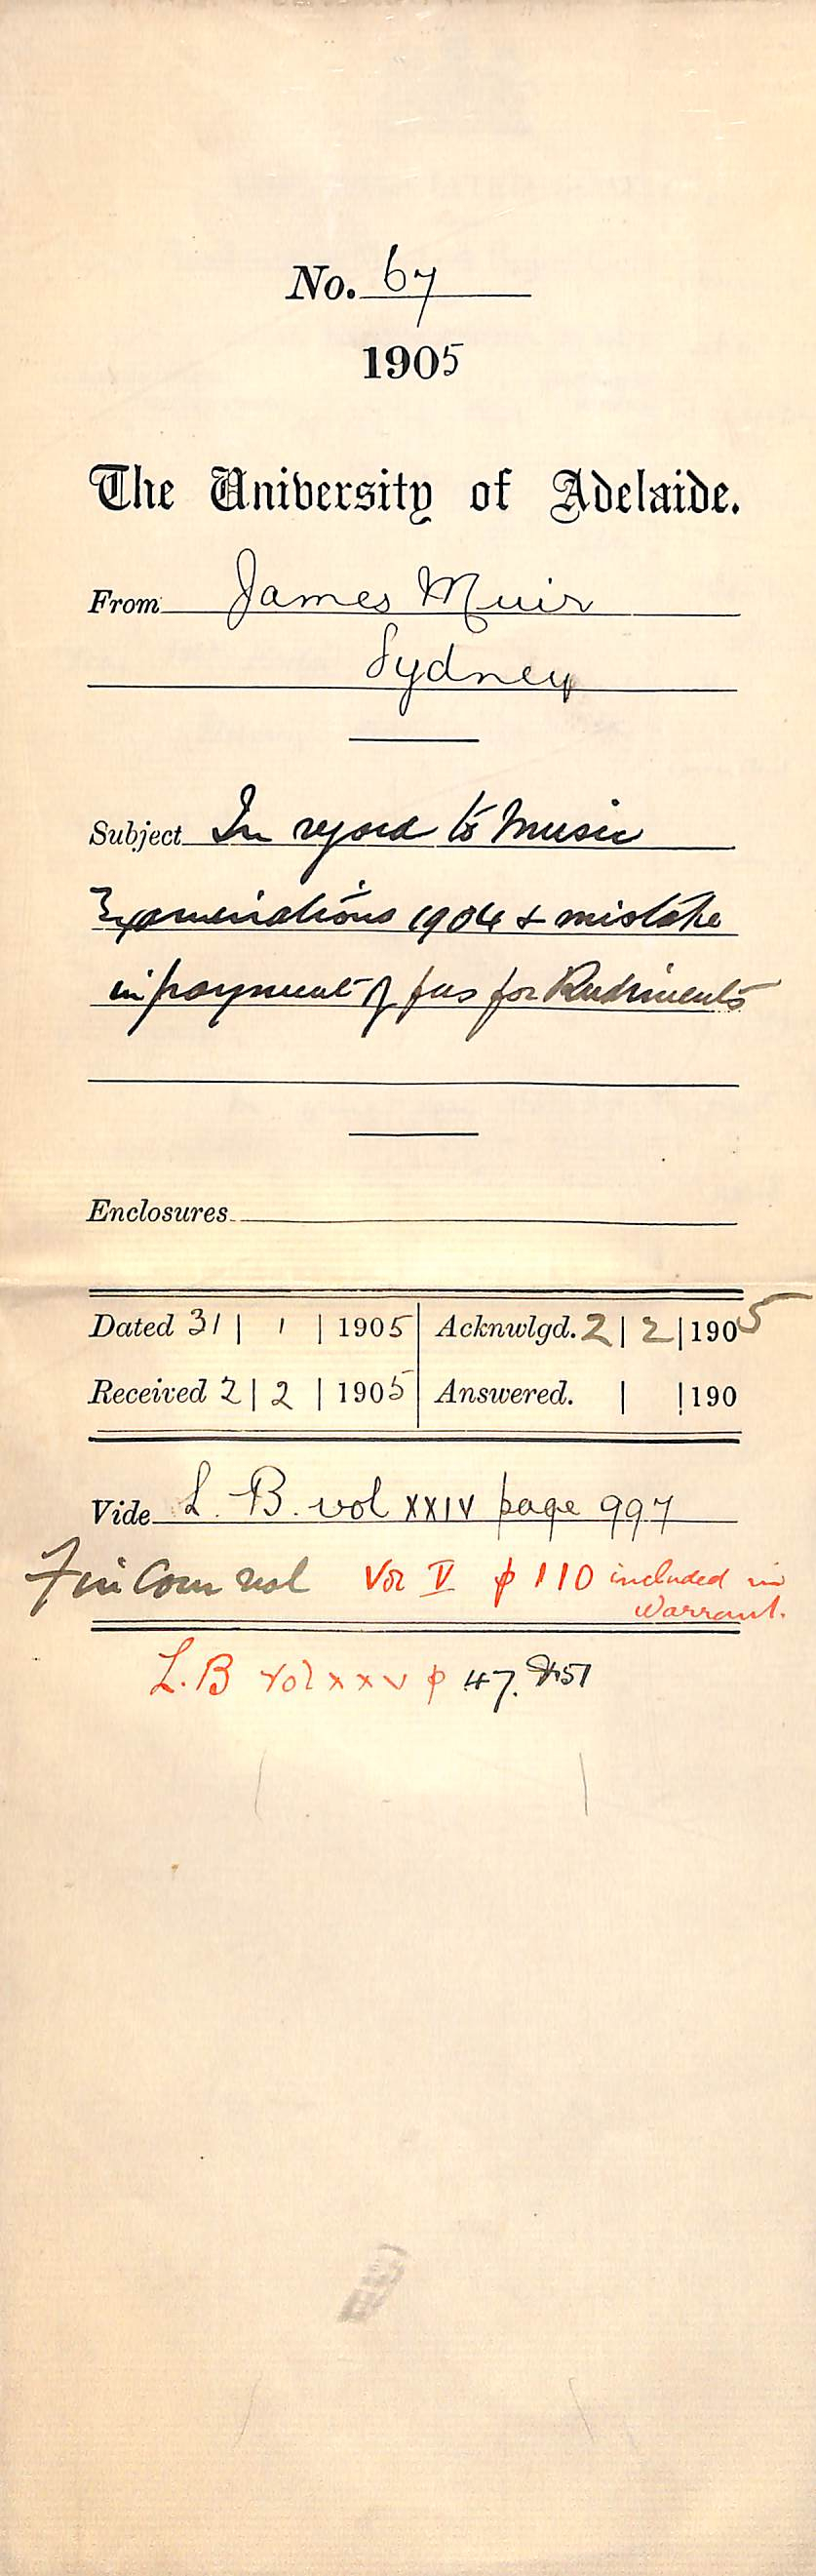 No. 67
1905
The University of Adelaide.
From James Muir
Sydney
Subject In regard to Music
Examinations 1904 & mistake
in payment of fees for Rudiments
Enclosures
Dated 31 | 1 | 1905 | Acknwlgd. 2 | 2 | 1905
Received 2 | 2 | 1905 | Answered. | | 190
Vide L. B. vol XXIV page 997
Fin Com vol Vol V p 110 included in
warrant.
L.B Vol xxv p 47. &51